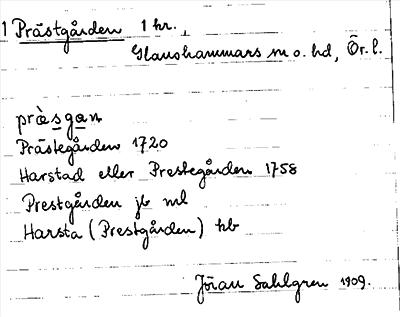 1 Prästgården 1 hr.
Glanshammars sn o. hd, Ör. l.
pràsgan
Prästegården 1720
Harstad eller Prestegården 1758
Prestgården jb ml
Harsta (Prestgården) hb
Jöran Sahlgren 1909.